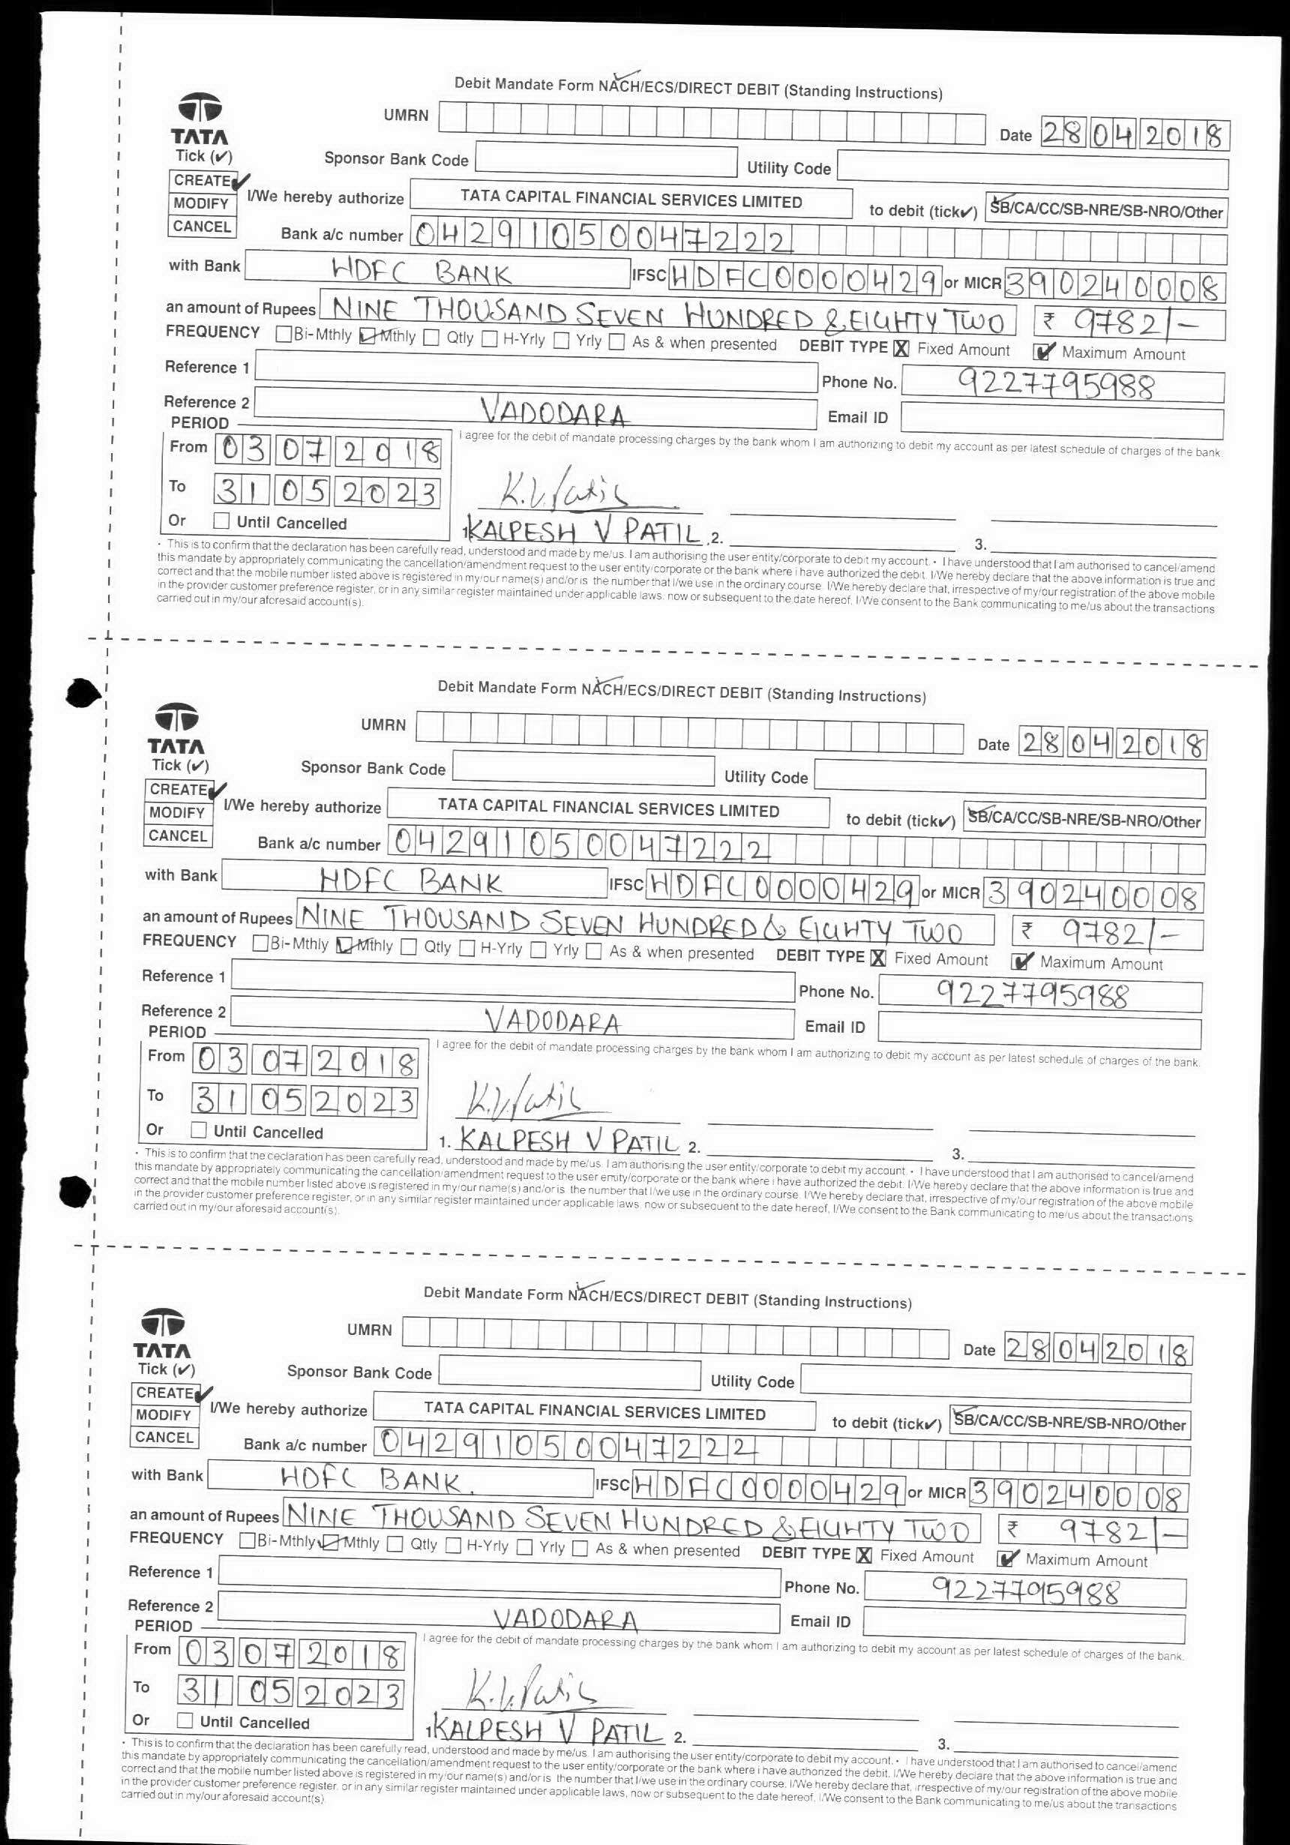 Debit Mandate Form NACH/ECS/DIRECT DEBIT (Standing Instructions)
TATA
UMRN
Date 28042018
Tick (✓)
Sponsor Bank Code
Utility Code
CREATE ✓
MODIFY
CANCEL
I/We hereby authorize TATA CAPITAL FINANCIAL SERVICES LIMITED to debit (tick✓) SB/CA/CC/SB-NRE/SB-NRO/Other
Bank a/c number 04291050047222
with Bank HDFC BANK IFSC HDFC0000429 or MICR 390240008
an amount of Rupees NINE THOUSAND SEVEN HUNDRED & EIGHTY TWO ₹ 9782/-
FREQUENCY Bi-Mthly Mthly Qtly H-Yrly Yrly As & when presented DEBIT TYPE X Fixed Amount ✓ Maximum Amount
Reference 1
Phone No. 9227795988
Reference 2 VADODARA
Email ID
PERIOD
I agree for the debit of mandate processing charges by the bank whom I am authorizing to debit my account as per latest schedule of charges of the bank.
From 03072018
To 31052023
K.V.Patil
Or Until Cancelled
1. KALPESH V PATIL 2. 3.
• This is to confirm that the declaration has been carefully read, understood and made by me/us. I am authorising the user entity/corporate to debit my account. • I have understood that I am authorised to cancel/amend
this mandate by appropriately communicating the cancellation/amendment request to the user entity/corporate or the bank where i have authorized the debit. I/We hereby declare that the above information is true and
correct and that the mobile number listed above is registered in my/our name(s) and/or is the number that I/we use in the ordinary course. I/We hereby declare that, irrespective of my/our registration of the above mobile
in the provider customer preference register, or in any similar register maintained under applicable laws, now or subsequent to the date hereof, I/We consent to the Bank communicating to me/us about the transactions
carried out in my/our aforesaid account(s).
Debit Mandate Form NACH/ECS/DIRECT DEBIT (Standing Instructions)
TATA
UMRN
Date 28042018
Tick (✓)
Sponsor Bank Code
Utility Code
CREATE ✓
MODIFY
CANCEL
I/We hereby authorize TATA CAPITAL FINANCIAL SERVICES LIMITED to debit (tick✓) SB/CA/CC/SB-NRE/SB-NRO/Other
Bank a/c number 04291050047222
with Bank HDFC BANK IFSC HDFC0000429 or MICR 390240008
an amount of Rupees NINE THOUSAND SEVEN HUNDRED & EIGHTY TWO ₹ 9782/-
FREQUENCY Bi-Mthly Mthly Qtly H-Yrly Yrly As & when presented DEBIT TYPE X Fixed Amount ✓ Maximum Amount
Reference 1
Phone No. 9227795988
Reference 2 VADODARA
Email ID
PERIOD
I agree for the debit of mandate processing charges by the bank whom I am authorizing to debit my account as per latest schedule of charges of the bank.
From 03072018
To 31052023
K.V.Patil
Or Until Cancelled
1. KALPESH V PATIL 2. 3.
• This is to confirm that the declaration has been carefully read, understood and made by me/us. I am authorising the user entity/corporate to debit my account. • I have understood that I am authorised to cancel/amend
this mandate by appropriately communicating the cancellation/amendment request to the user entity/corporate or the bank where i have authorized the debit. I/We hereby declare that the above information is true and
correct and that the mobile number listed above is registered in my/our name(s) and/or is the number that I/we use in the ordinary course. I/We hereby declare that, irrespective of my/our registration of the above mobile
in the provider customer preference register, or in any similar register maintained under applicable laws, now or subsequent to the date hereof, I/We consent to the Bank communicating to me/us about the transactions
carried out in my/our aforesaid account(s).
Debit Mandate Form NACH/ECS/DIRECT DEBIT (Standing Instructions)
TATA
UMRN
Date 28042018
Tick (✓)
Sponsor Bank Code
Utility Code
CREATE ✓
MODIFY
CANCEL
I/We hereby authorize TATA CAPITAL FINANCIAL SERVICES LIMITED to debit (tick✓) SB/CA/CC/SB-NRE/SB-NRO/Other
Bank a/c number 04291050047222
with Bank HDFC BANK. IFSC HDFC0000429 or MICR 390240008
an amount of Rupees NINE THOUSAND SEVEN HUNDRED & EIGHTY TWO ₹ 9782/-
FREQUENCY Bi-Mthly Mthly Qtly H-Yrly Yrly As & when presented DEBIT TYPE X Fixed Amount ✓ Maximum Amount
Reference 1
Phone No. 9227795988
Reference 2 VADODARA
Email ID
PERIOD
I agree for the debit of mandate processing charges by the bank whom I am authorizing to debit my account as per latest schedule of charges of the bank.
From 03072018
To 31052023
K.V.Patil
Or Until Cancelled
1. KALPESH V PATIL 2. 3.
• This is to confirm that the declaration has been carefully read, understood and made by me/us. I am authorising the user entity/corporate to debit my account. • I have understood that I am authorised to cancel/amend
this mandate by appropriately communicating the cancellation/amendment request to the user entity/corporate or the bank where i have authorized the debit. I/We hereby declare that the above information is true and
correct and that the mobile number listed above is registered in my/our name(s) and/or is the number that I/we use in the ordinary course. I/We hereby declare that, irrespective of my/our registration of the above mobile
in the provider customer preference register, or in any similar register maintained under applicable laws, now or subsequent to the date hereof, I/We consent to the Bank communicating to me/us about the transactions
carried out in my/our aforesaid account(s)